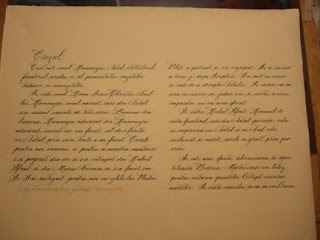 Crezul
Cred într-unul Dumnezeu, Tatăl Atotțiitorul,
Făcătorul cerului și al pământului, văzutelor
tuturor și nevăzutelor.
Și întru unul Domn Iisus Christos, Fiul
lui Dumnezeu, unul născut, care din Tatăl
s-a născut înainte de toți vecii. Lumină din
lumină, Dumnezeu adevărat din Dumnezeu
adevărat, născut iar nu făcut, cel de o ființă
cu Tatăl prin care toate s-au făcut. Carele
pentru noi oamenii și pentru a noastră mântuire
s-a pogorât din cer și s-a întrupat din Duhul
Sfânt și din Maria Fecioara și s-a făcut om.
Și S-a răstignit pentru noi în zilele lui Ponțiu
Pilat a pătimit și s-a îngropat. Și a înviat
a treia zi, după Scripturi. Și s-a suit la ceruri
și șade de-a dreapta Tatălui. Și iarăși va să
vină cu mărire, să judece viii și morții, a cărui
împărăție nu va avea sfârșit.
Și întru Duhul Sfânt, Domnul de
viață făcătorul, care din Tatăl purcede, cela
ce împreună cu Tatăl și cu Fiul este
închinat și mărit, carele a grăit prin pro-
oroci.
Și într-una sfântă sobornicească și apos-
tolească Biserică. Mărturisesc un botez
pentru iertarea păcatelor. Aștept învierea
morților. Și viața veacului ce va să vie. Amin